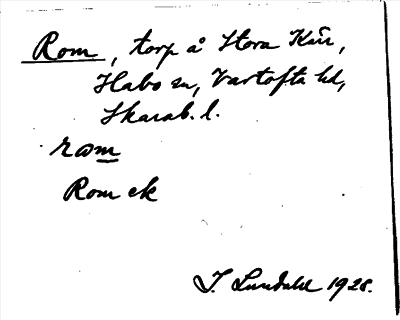 Rom, torp å Stora Kärr,
Habo sn, Vartofta hd,
Skarab. l.
rom
Rom ek
I. Lundahl 1928.